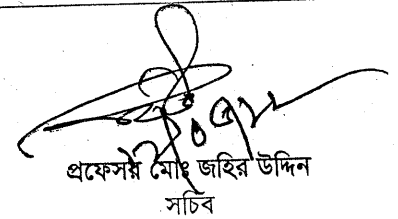 প্রফেসর মোঃ জহির উদ্দিন
সচিব